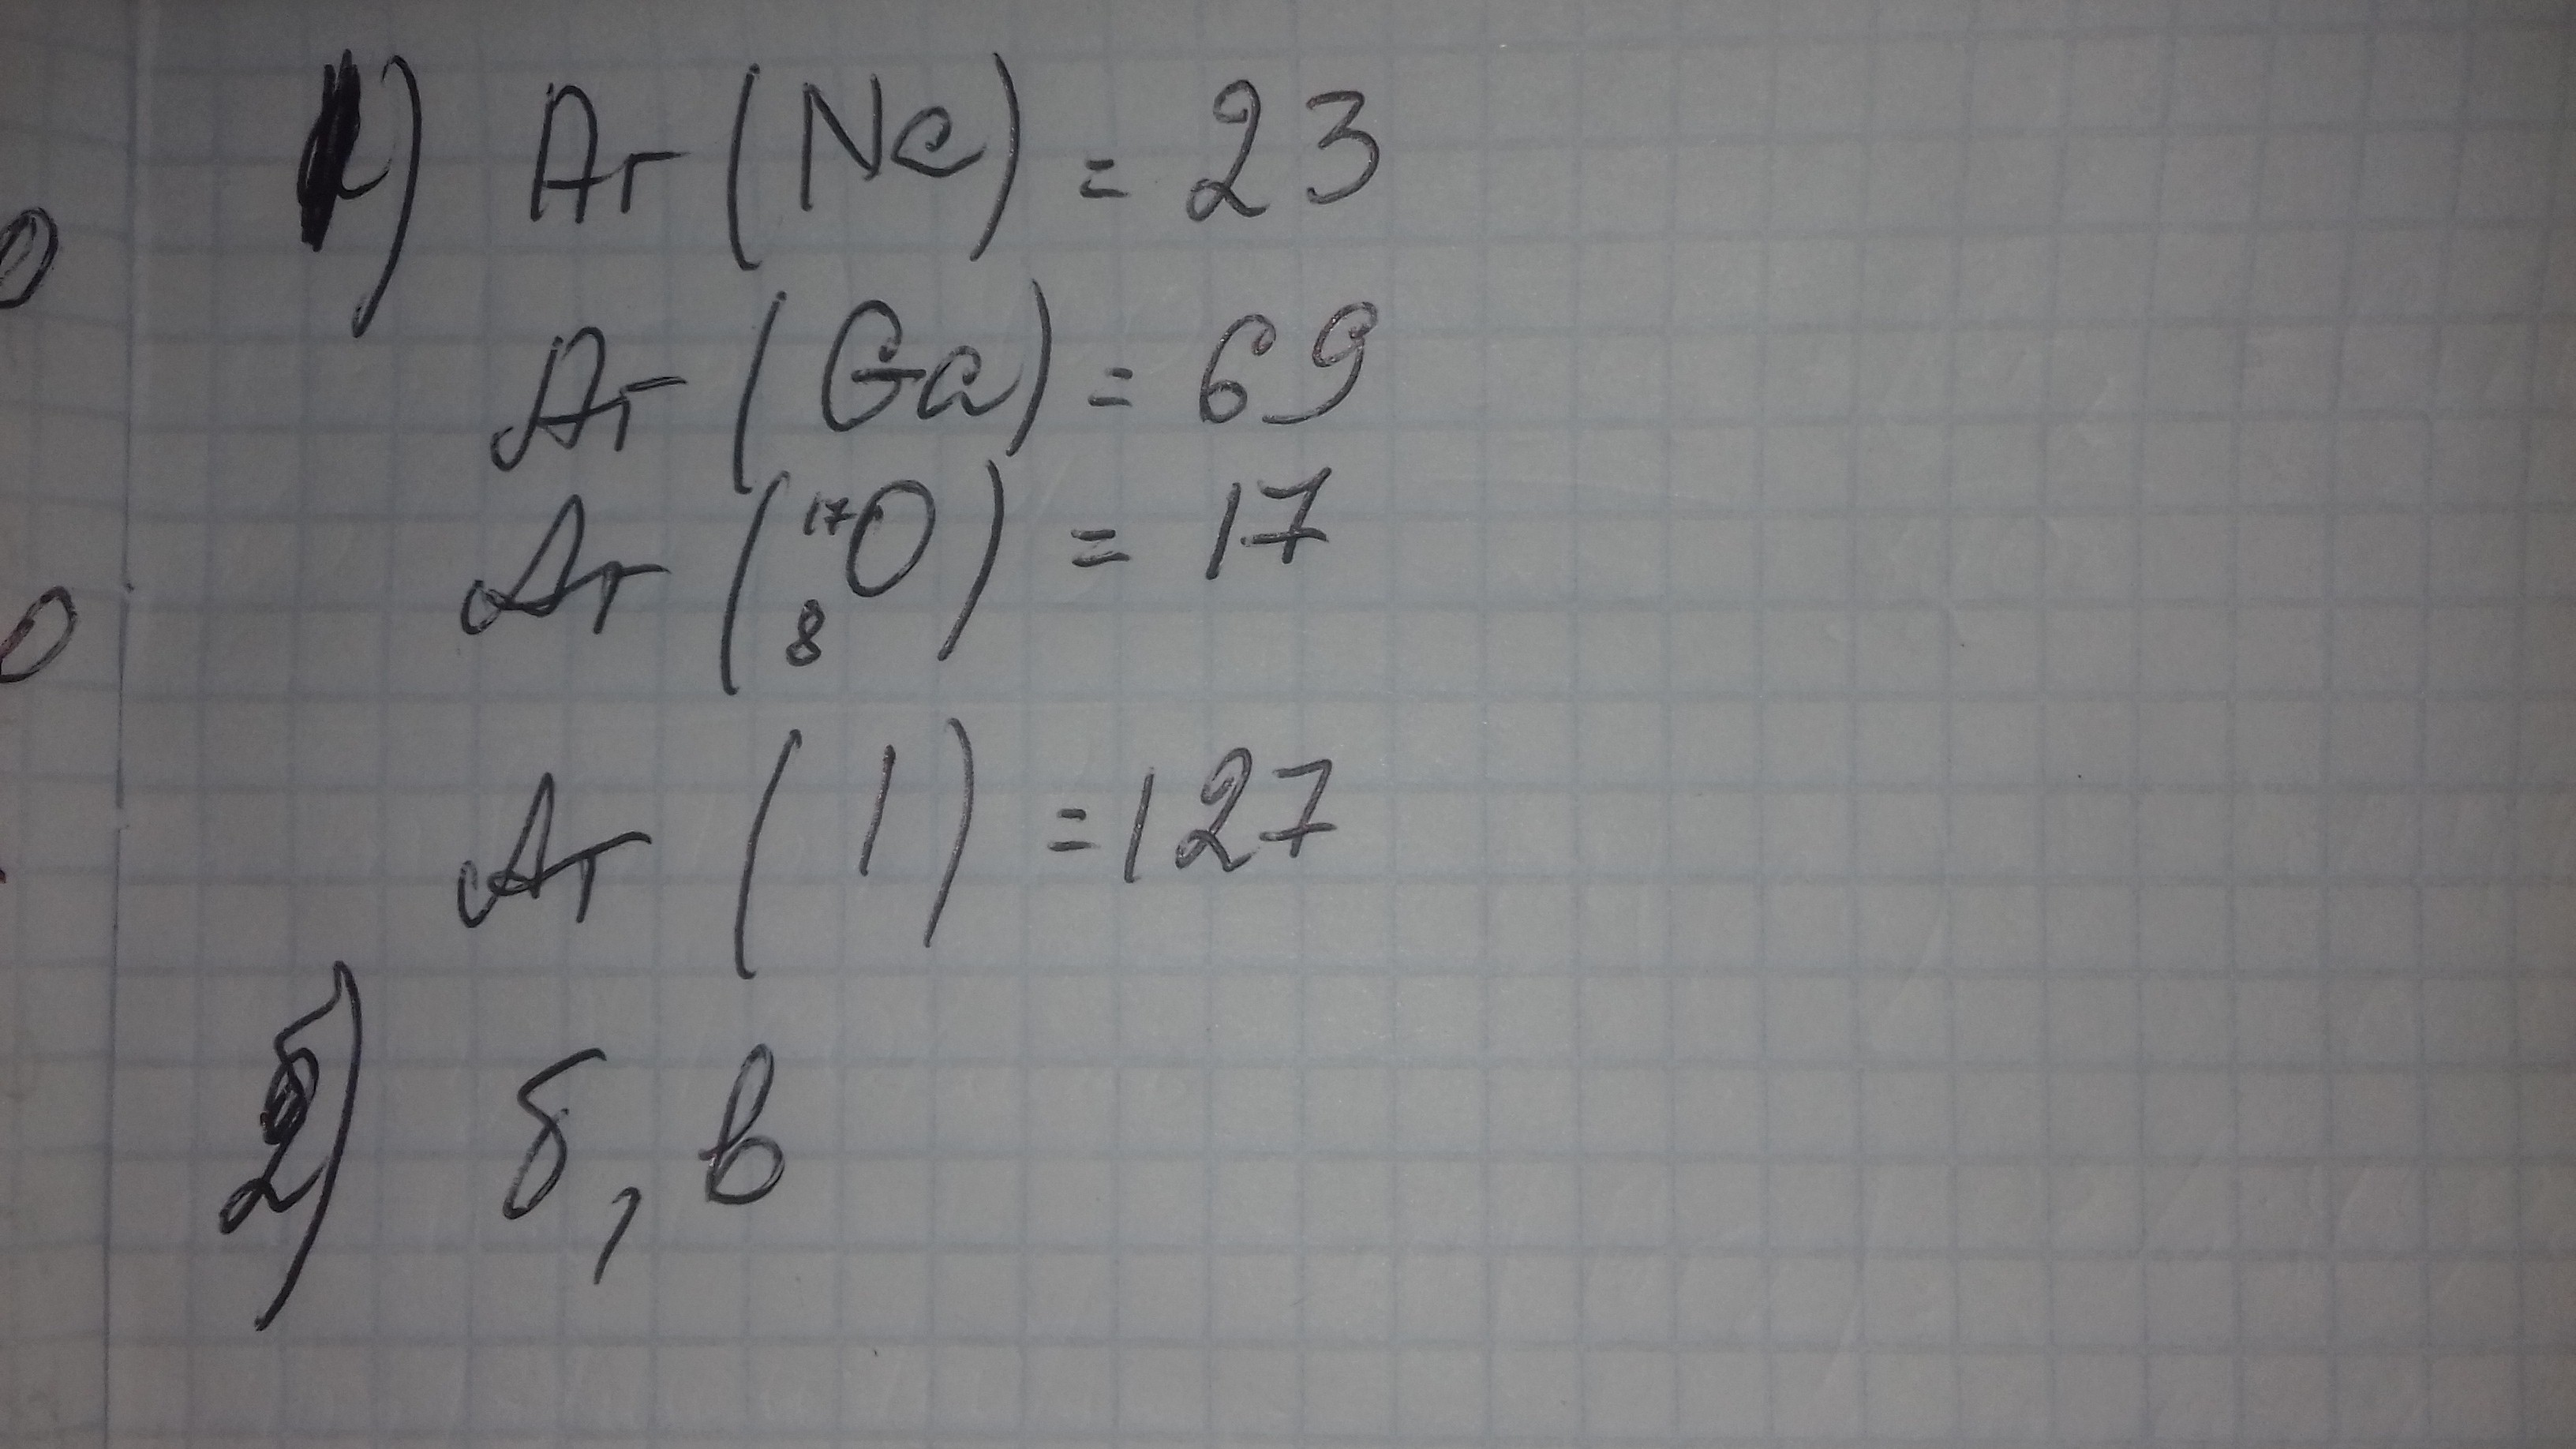 1) Ar (Na) = 23
Ar (Ga) = 69
Ar (¹⁷₈O) = 17
Ar (I) = 127
2) б, в